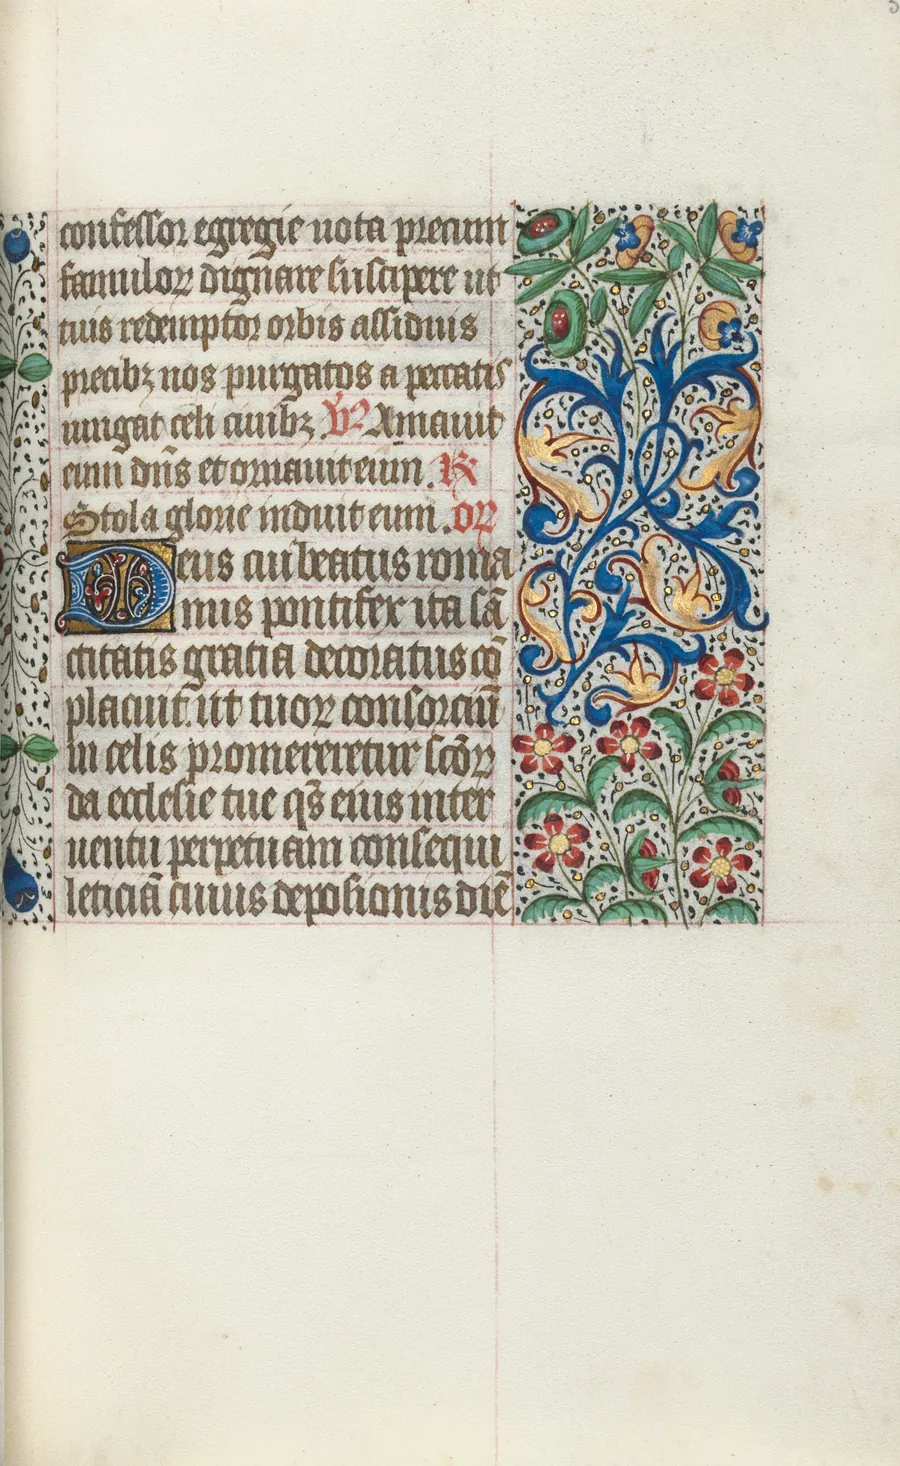 confessor egregie uota precum
famuloꝝ dignare suscipere ut
tuis redemptoꝝ orbis assiduis
precibꝫ nos purgatos a peccatis
iungat celi ciuibꝫ ℣ Amauit
eum dn̄s et ornauit eum . ℟
Stola glorie induit eum . oꝝ
Deus cui beatus roma
nus pontifex ita sā
ctitatis gratia decoratus cō
placuit. ut tuoꝝ consorciū
in celis promereretur scōꝝ
da ecclesie tue qs̄ eius inter
uentu perpetuam consequi
leticiā cuius deposionis diē